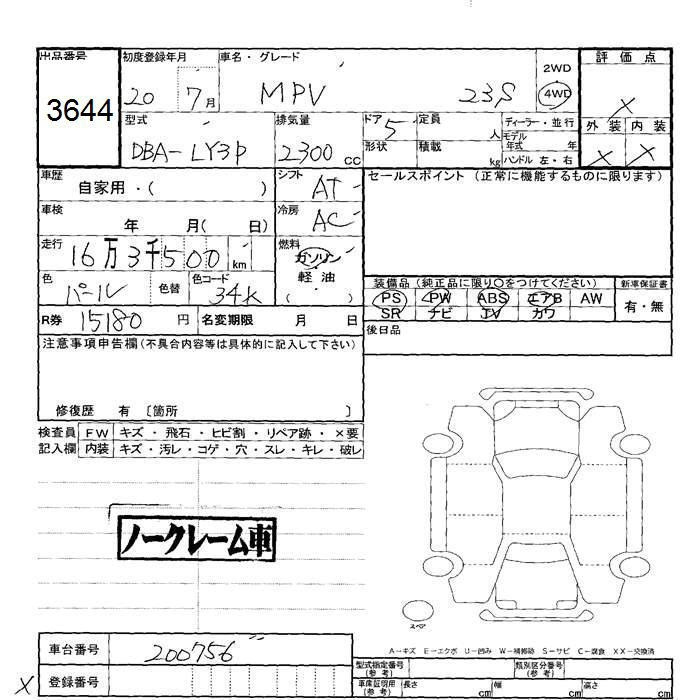 出品番号 初度登録年月 車名・グレード 2WD 評価点
3644 20 7月 MPV 23S 4WD X
型式 排気量 ドア 定員 ディーラー・並行 外装 内装
DBA-LY3P 2300cc 5 人 モデル年式 年 X X
形状 積載 kg ハンドル 左・右
車歴 自家用・( ) シフト AT セールスポイント (正常に機能するものに限ります)
車検 年 月( 日) 冷房 AC
走行 16万3千500km 燃料 ガソリン・軽油・( )
色 パール 色替 色コード 34K 装備品 (純正品に限り○をつけてください) 新車保証書
PS PW ABS エアB AW 有・無
SR ナビ TV カワ
R券 15180円 名変期限 月 日 後日品
注意事項申告欄(不具合内容等は具体的に記入して下さい)
修復歴 有 〔箇所 〕
検査員 FW キズ・飛石・ヒビ割・リペア跡・×要
記入欄 内装 キズ・汚レ・コゲ・穴・スレ・キレ・破レ
ノークレーム車
スペア
A-キズ E-エクボ U-凹み W-補修跡 S-サビ C-腐食 XX-交換済
車台番号 200756 型式指定番号(参考) 類別区分番号(参考)
X 登録番号 車庫証明用(参考) 長さ cm 幅 cm 高さ cm